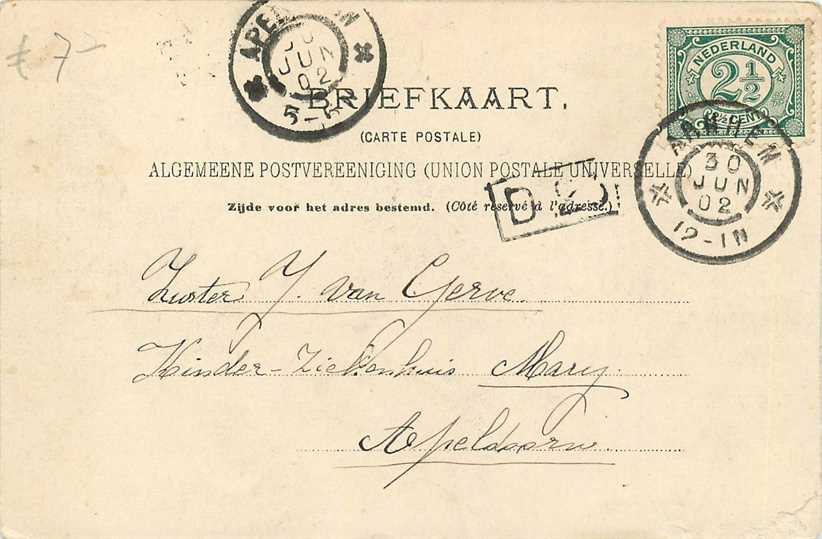 £ 7-
APELDOORN
30
JUN
02
5-6
NEDERLAND
2½
CENT
ARNHEM
30
JUN
02
12-1N
BRIEFKAART.
(CARTE POSTALE)
ALGEMEENE POSTVEREENIGING (UNION POSTALE UNIVERSELLE)
Zijde voor het adres bestemd. (Côté réservé à l'adresse.)
D
Zuster J. van Gerve.
Kinder-Ziekenhuis Mary.
Apeldoorn